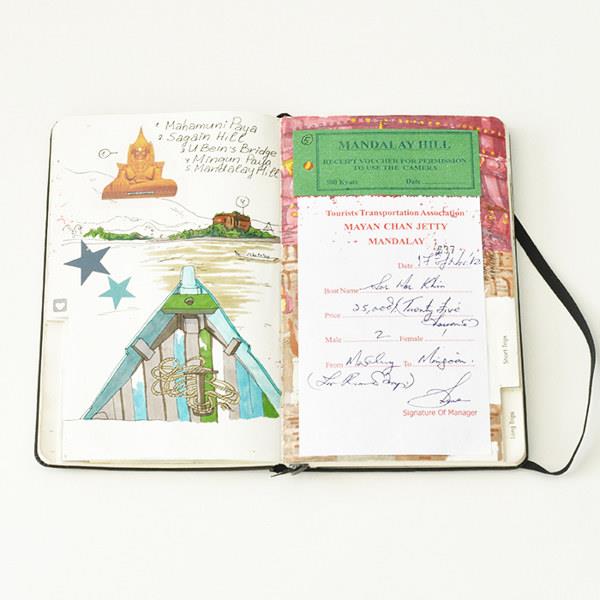 1 Mahamuni Paya
2 Sagain Hill
3 U Bein's Bridge
4 Mingun Paya
5 Mandalay Hill
4
5
MANDALAY HILL
RECEIPT VOUCHER FOR PERMISSION
TO USE THE CAMERA
500 Kyats Date
Tourists Transportation Association
MAYAN CHAN JETTY
MANDALAY
Date
Boat Name
Price 25,000/ Twenty Five
Male 2 Female
From To
Signature Of Manager
Short Trips
Long Trips